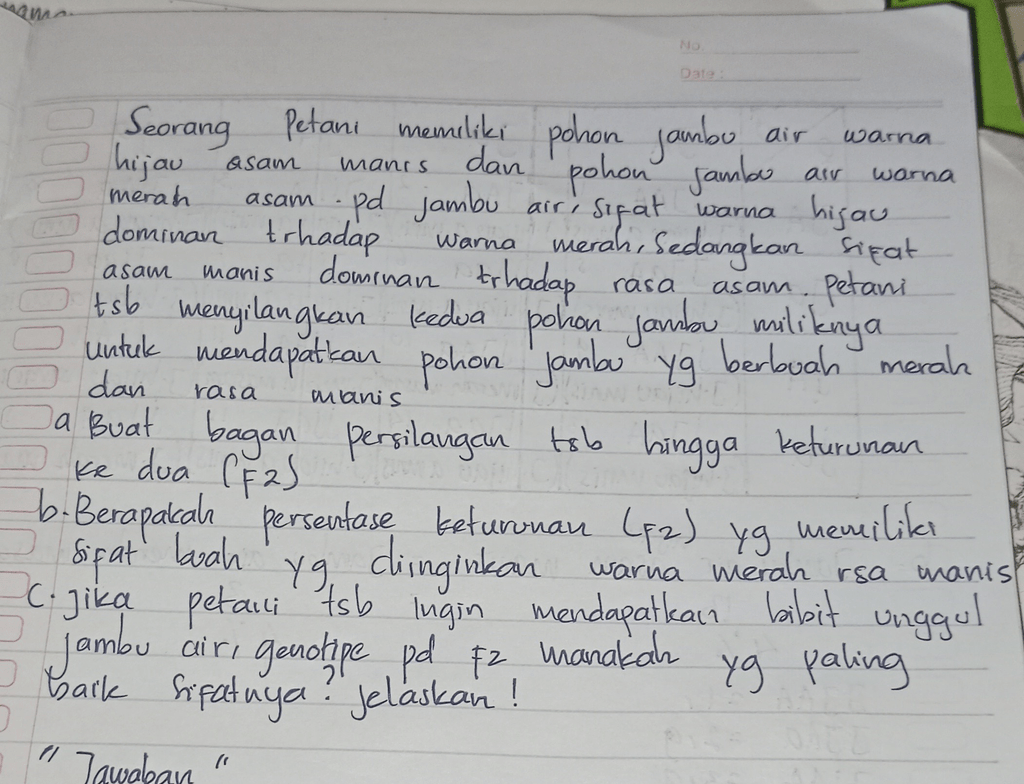 No.
Date:
Seorang Petani memiliki pohon jambu air warna
hijau asam manis dan pohon jambu air warna
merah asam. pd jambu air, sifat warna hijau
dominan trhadap warna merah, sedangkan sifat
asam manis dominan trhadap rasa asam. Petani
tsb menyilangkan kedua pohon jambu miliknya
untuk mendapatkan pohon jambu yg berbuah merah
dan rasa manis
a Buat bagan persilangan tsb hingga keturunan
ke dua (F2)
b. Berapakah persentase keturunan (F2) yg memiliki
sifat buah yg diinginkan warna merah rsa manis
C. Jika petani tsb ingin mendapatkan bibit unggul
jambu air, genotipe pd F2 manakah yg paling
baik sifatnya? jelaskan!
"Jawaban"